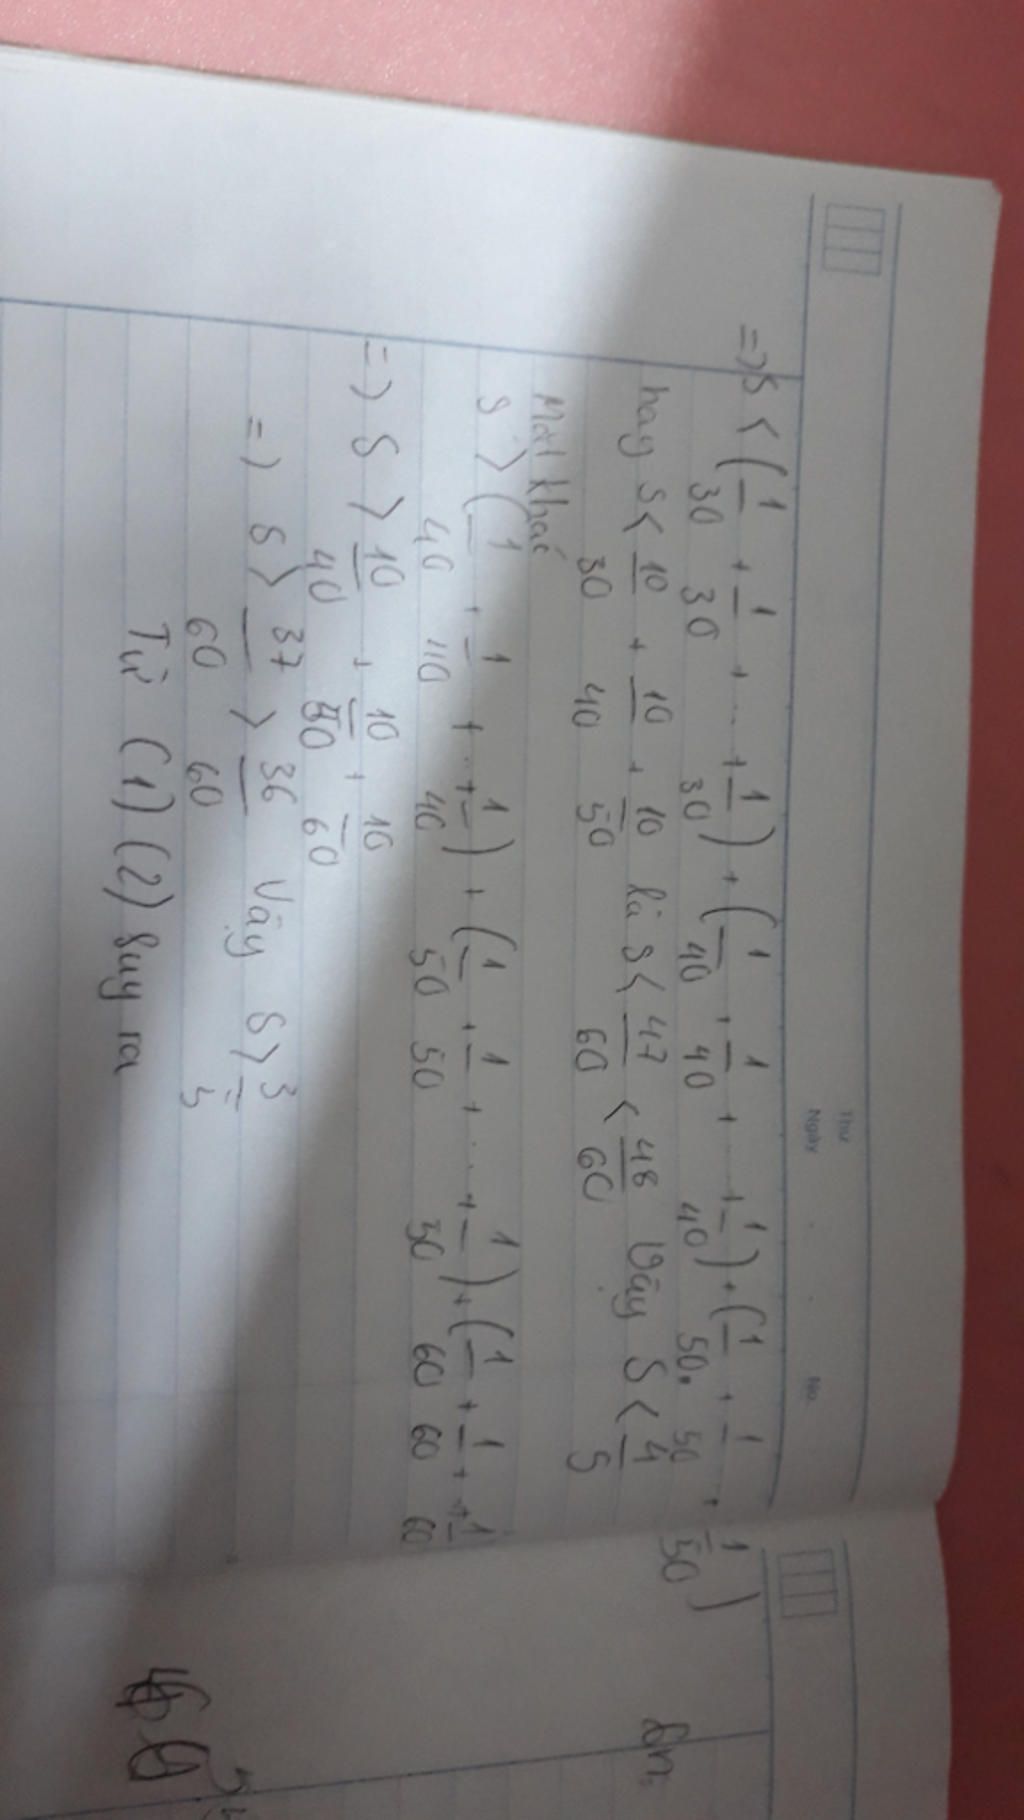 Thứ
Ngày . . No.
=> S < (1/30 + 1/30 + ... + 1/30) + (1/40 + 1/40 + ... + 1/40) + (1/50 + 1/50 . 1/50)
hay S < 10/30 + 10/40 + 10/50 là S < 47/60 < 48/60 Vậy S < 4/5
Mặt khác
S > (1/40 + 1/40 + ... + 1/40) + (1/50 + 1/50 + ... + 1/50) + (1/60 + 1/60 + + 1/60
=> S > 10/40 + 10/50 + 10/60
=> S > 37/60 > 36/60 Vậy S > 3/5
Từ (1) (2) suy ra